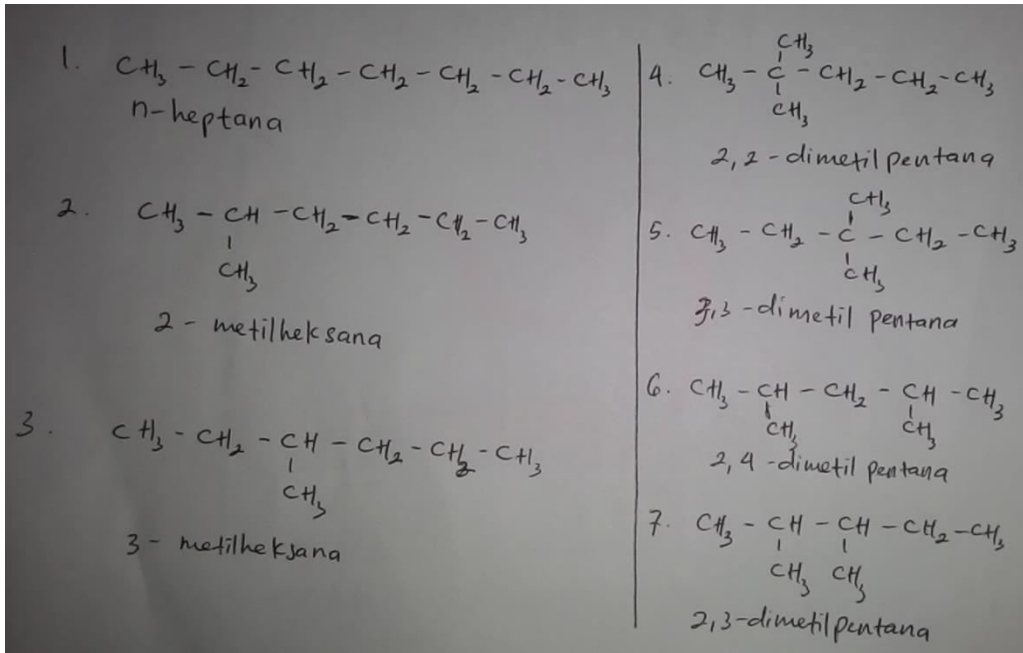 1. CH₃ – CH₂ – CH₂ – CH₂ – CH₂ – CH₂ – CH₃
n-heptana
2. CH₃ – CH – CH₂ – CH₂ – CH₂ – CH₃
CH₃
2 – metilheksana
3. CH₃ – CH₂ – CH – CH₂ – CH₂ – CH₃
CH₃
3 – metilheksana
CH₃
4. CH₃ – C – CH₂ – CH₂ – CH₃
CH₃
2,2 – dimetilpentana
CH₃
5. CH₃ – CH₂ – C – CH₂ – CH₃
CH₃
3,3 – dimetil pentana
6. CH₃ – CH – CH₂ – CH – CH₃
CH₃ CH₃
2,4 – dimetil pentana
7. CH₃ – CH – CH – CH₂ – CH₃
CH₃ CH₃
2,3-dimetilpentana